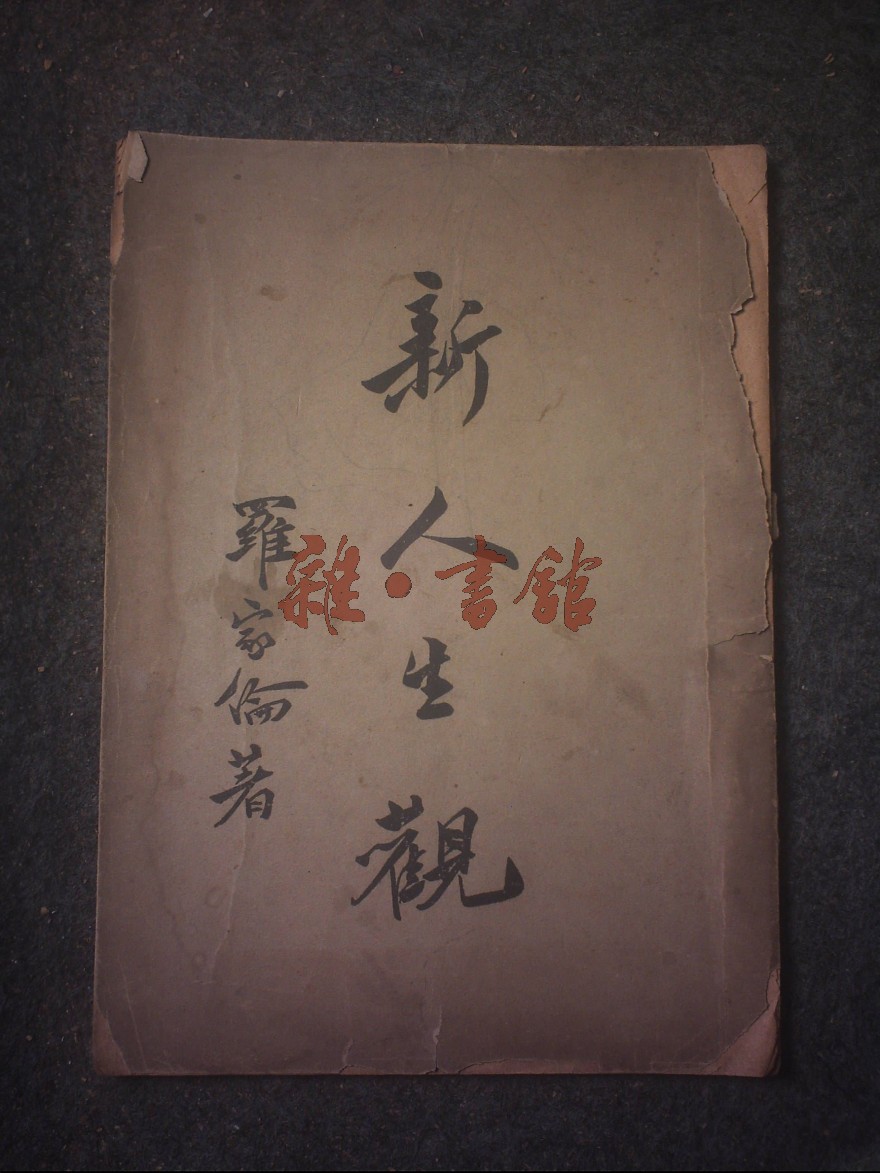 新人生觀
羅家倫著
雜·書館